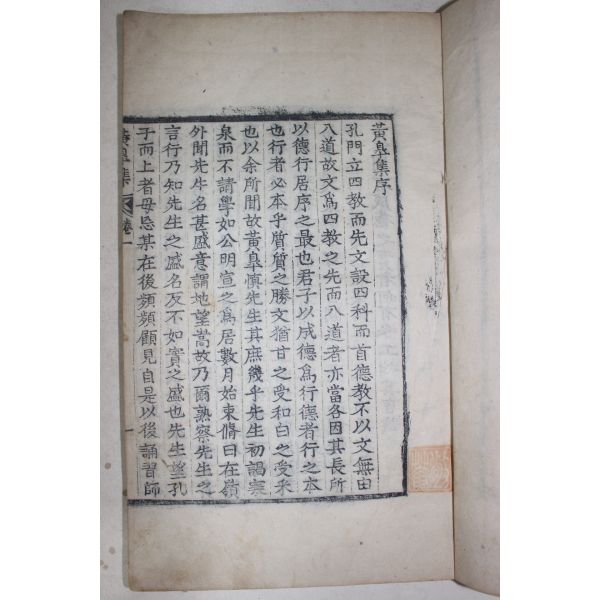 黃皐集序
孔門立四教而先文設四科而首德教不以文無由
入道故文爲四教之先而入道者亦當各因其長所
以德行居序之最也君子以成德爲行德者行之本
也行者必本乎質質之勝文猶甘之受和白之受采
也以余所聞故黃皐愼先生其庶幾乎先生初謁寒
泉而不請學如公明宣之爲居數月始束脩曰在嶺
外聞先生名甚盛意謂地望嵩故乃爾熟察先生之
言行乃知先生之盛名反不如實之盛也先生望孔
子而上者毋忘某在後頻頻顧見自是以後誦習師
皐集 卷一
一